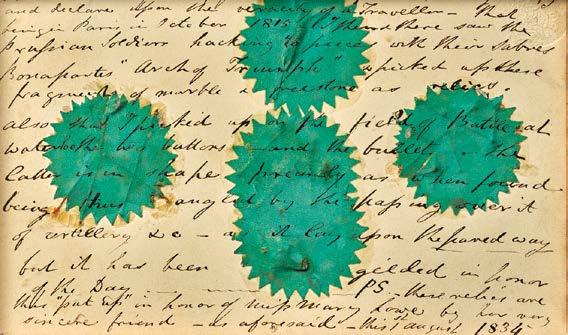 and declare upon the veracity of a Traveller – that
being in Paris in October 1815 "then & there saw the
Prussian Soldiers hacking to pieces with their Sabres
Bonapartes" Arch of Triumph" & picked up these
fragments of marble & freestone as relics.
also that I picked up on the field of Battle at
Waterloo the two buttons – and the bullet – the
latter is in shape precisely as when found
being thus mangled by the passing over it
of artillery &c – as it lay upon the paved way
but it has been gilded in honor
of the Day PS – these relics are
thus "put up" in honor of Miss Mary Howe by her very
sincere friend – as aforesaid – this August 1834